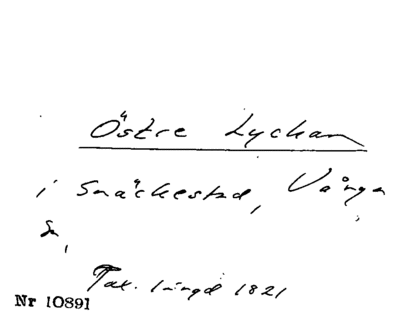 Östre Lyckan
i Snäckestad, Vånga
Sn,
Tax. längd 1821
Nr 10891